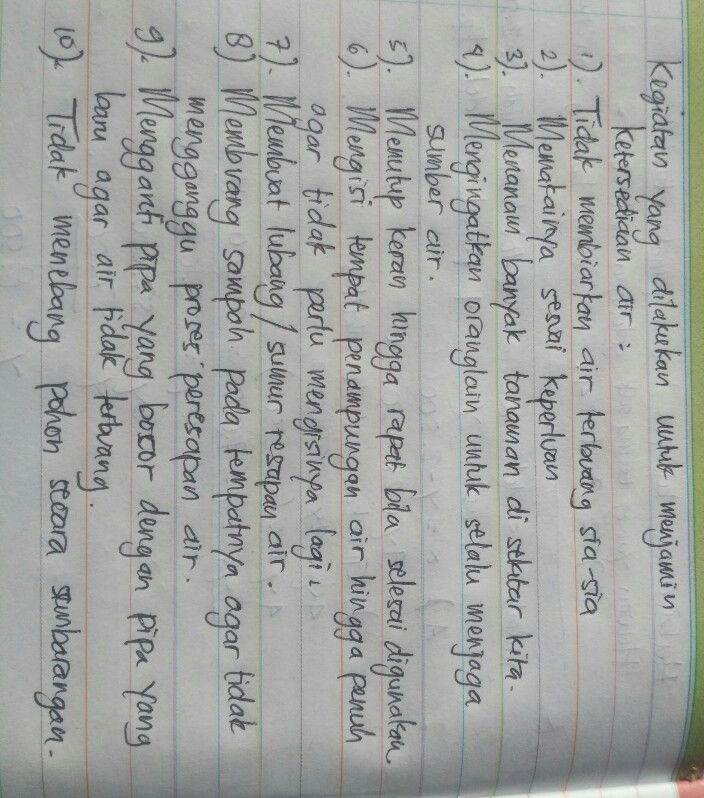 Kegiatan yang dilakukan untuk menjamin
ketersediaan air :
1). Tidak membiarkan air terbuang sia-sia
2). Memakainya sesuai keperluan
3). Menanam banyak tanaman di sekitar kita.
4). Mengingatkan oranglain untuk selalu menjaga
sumber air.
5). Menutup keran hingga rapat bila selesai digunakan
6). Mengisi tempat penampungan air hingga penuh
agar tidak perlu mengisinya lagi.
7). Membuat lubang/sumur resapan air.
8) Membuang sampah pada tempatnya agar tidak
mengganggu proses peresapan air.
9). Mengganti pipa yang bocor dengan pipa yang
baru agar air tidak terbuang.
10). Tidak menebang pohon secara sembarangan.